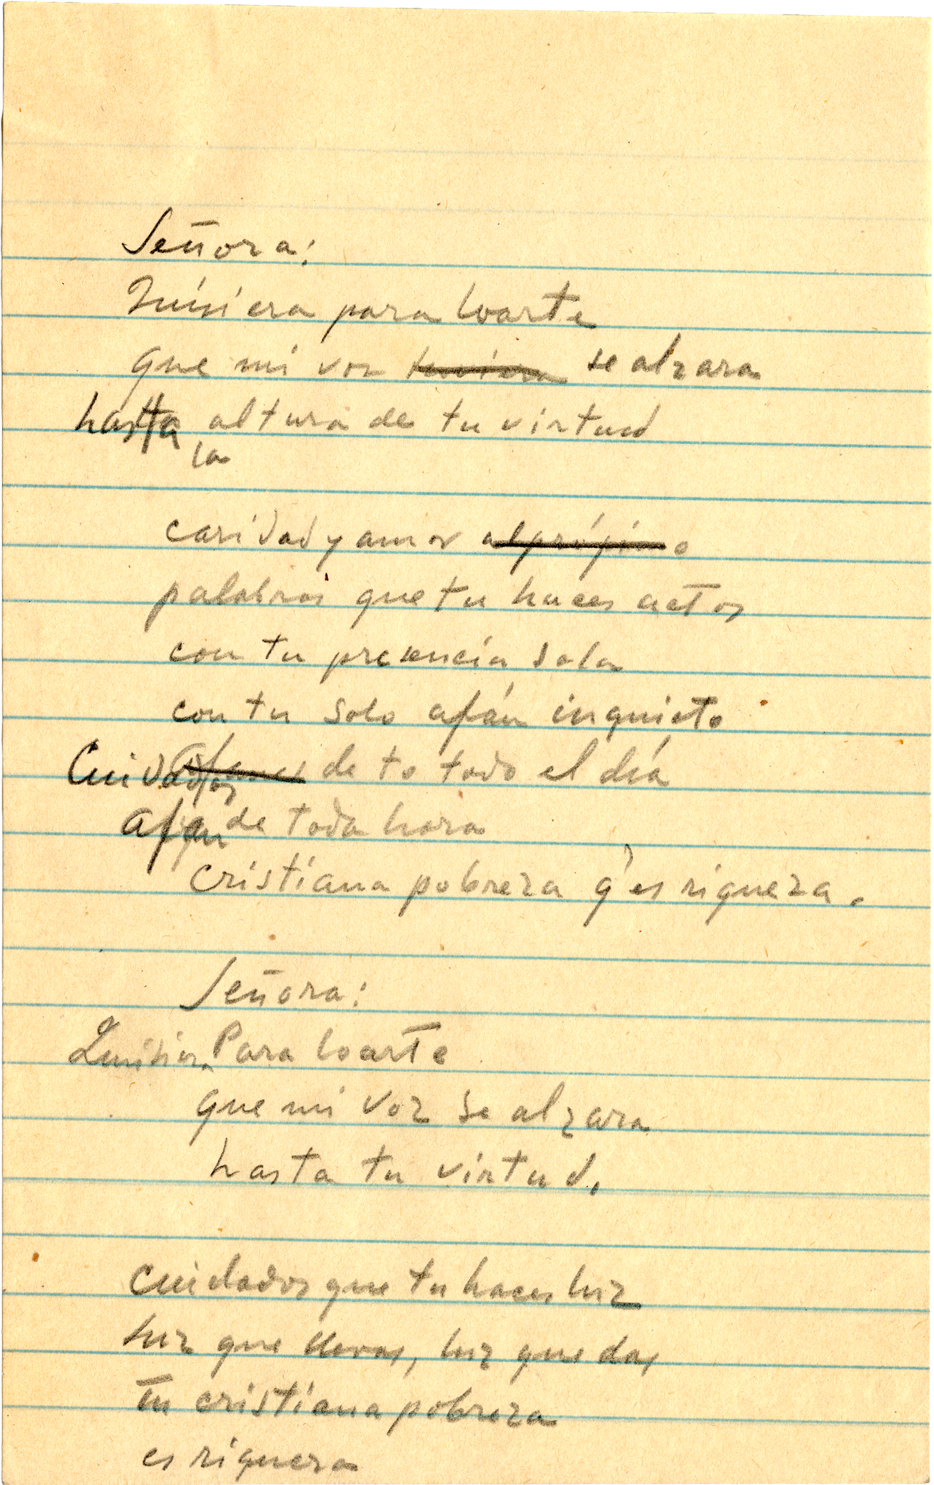 Señora:
Quisiera para loarte
que mi voz tuviera se alzara
hasta la altura de tu virtud
caridad y amor al prójimo
palabras que tu haces actos
con tu presencia sola
con tu solo afán inquieto
Cuidados afanes de to todo el día
afan de toda hora
cristiana pobreza q' es riqueza.
Señora:
Quisiera Para loarte
que mi voz se alzara
hasta tu virtud.
Cuidados que tu haces luz
luz que llevas, luz que das
tu cristiana pobreza
es riqueza